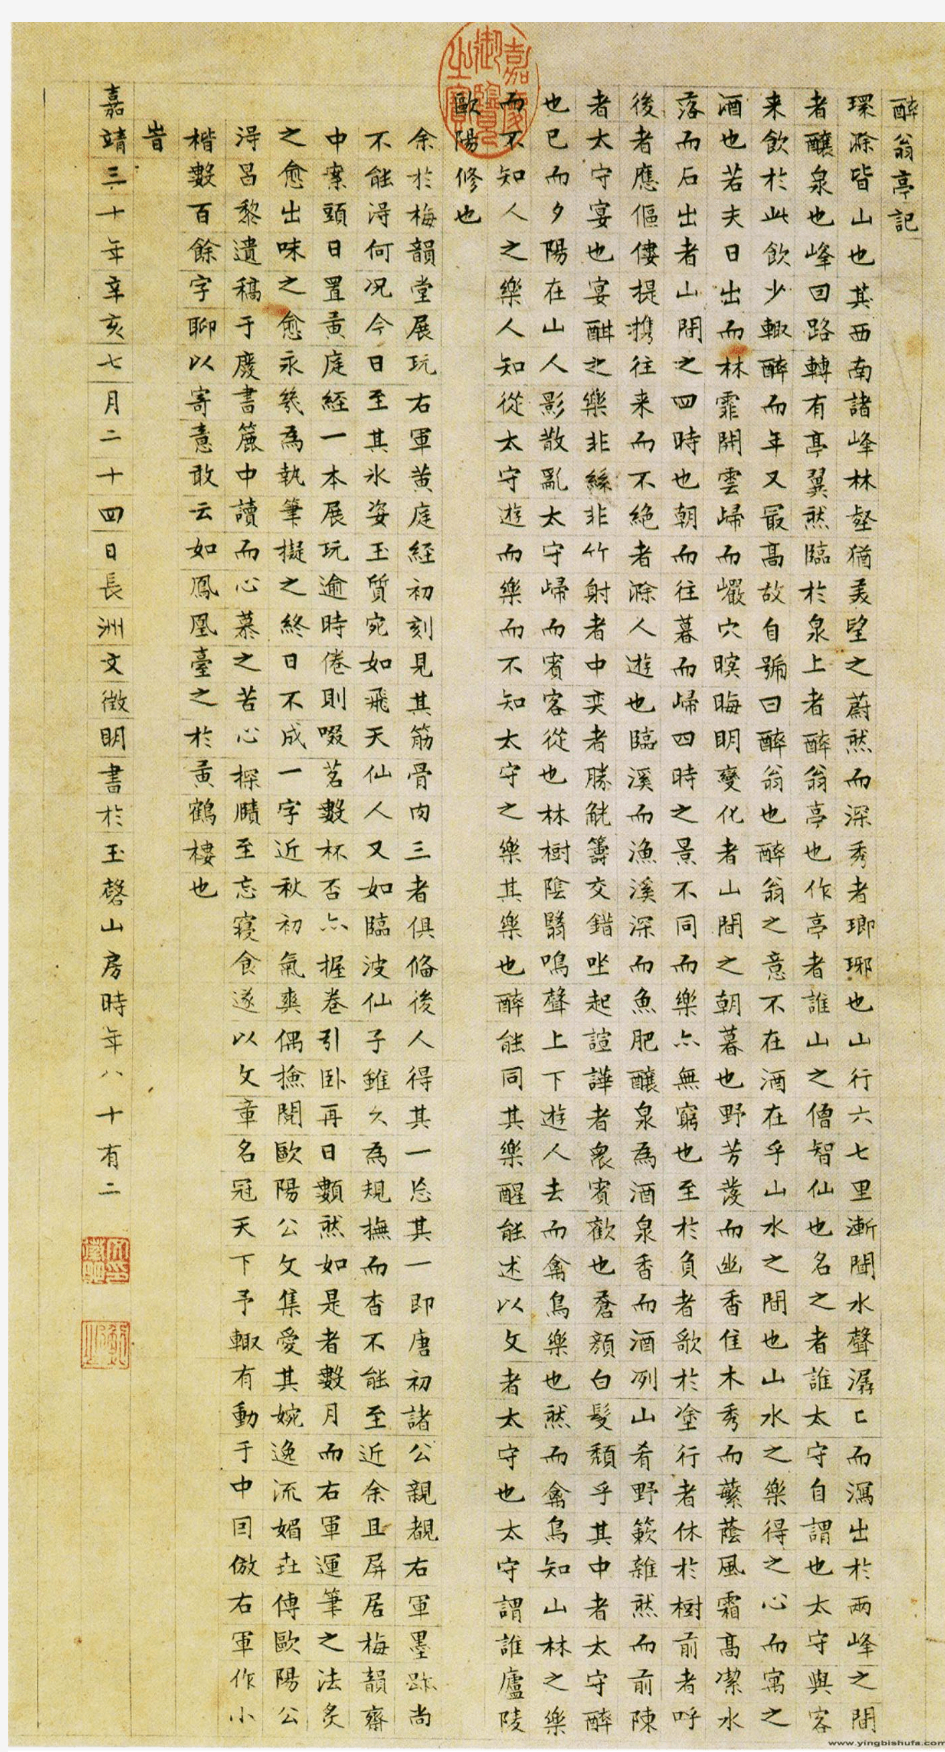 醉翁亭記
環滁皆山也其西南諸峰林壑猶美望之蔚然而深秀者瑯琊也山行六七里漸聞水聲潺〻而瀉出於兩峰之間
者釀泉也峰回路轉有亭翼然臨於泉上者醉翁亭也作亭者誰山之僧智仙也名之者誰太守自謂也太守與客
来飲於此飲少輒醉而年又最髙故自號曰醉翁也醉翁之意不在酒在乎山水之間也山水之樂得之心而寓之
酒也若夫日出而林霏開雲歸而巖穴暝晦明變化者山間之朝暮也野芳發而幽香佳木秀而蘩蔭風霜髙潔水
落而石出者山間之四時也朝而往暮而歸四時之景不同而樂亦無窮也至於負者歌於塗行者休於樹前者呼
後者應傴僂提攜往来而不絶者滁人遊也臨溪而漁溪深而魚肥釀泉為酒泉香而酒冽山肴野蔌雜然而前陳
者太守宴也宴酣之樂非絲非竹射者中奕者勝觥籌交錯坐起諠譁者衆賓歡也蒼顏白髮頹乎其中者太守醉
也已而夕陽在山人影散亂太守歸而賓客從也林樹陰翳鳴聲上下遊人去而禽鳥樂也然而禽鳥知山林之樂
而不知人之樂人知從太守遊而樂而不知太守之樂其樂也醉能同其樂醒能述以文者太守也太守謂誰廬陵
歐陽修也
余於梅韻堂展玩右軍黄庭經初刻見其筋骨肉三者俱俻後人得其一忘其一即唐初諸公親覩右軍墨跡尚
不能淂何况今日至其氷姿玉質宛如飛天仙人又如臨波仙子雖久為規撫而杳不能至近余且屏居梅韻齋
中案頭日置黄庭經一本展玩逾時倦則啜茗數杯否亦握卷引卧再日顭然如是者數月而右軍運筆之法炙
之愈出味之愈永幾為執筆擬之終日不成一字近秋初氣爽偶撿閱歐陽公文集愛其婉逸流媚亟傳歐陽公
淂昌黎遺稿于廢書簏中讀而心慕之苦心探賾至忘寢食遂以文章名冠天下予輒有動于中因倣右軍作小
楷數百餘字聊以寄意敢云如鳳凰臺之於黄鶴樓也
旹
嘉靖三十年辛亥七月二十四日長洲文徵明書於玉磬山房時年八十有二
嘉慶御覽之寶
文徵明印
www.yingbishufa.com